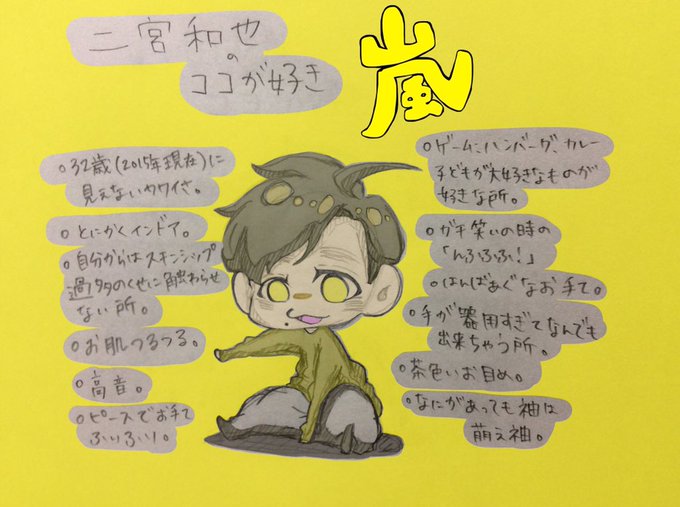 二宮和也
の
ココが好き
嵐
○32歳(2015年現在)に
見えないカワイさ。
○とにかくインドア。
○自分からはスキンシップ
過多のくせに触わらせ
ない所。
○お肌つるつる。
○高音。
○ピースでお手て
ふりふり。
○ゲーム、ハンバーグ、カレー
子どもが大好きなものが
好きな所。
○ガチ笑いの時の
「んふふふ!」
○はんばあぐなお手て。
○手が器用すぎてなんでも
出来ちゃう所。
○茶色いお目め。
○なにがあっても袖は
萌え袖。